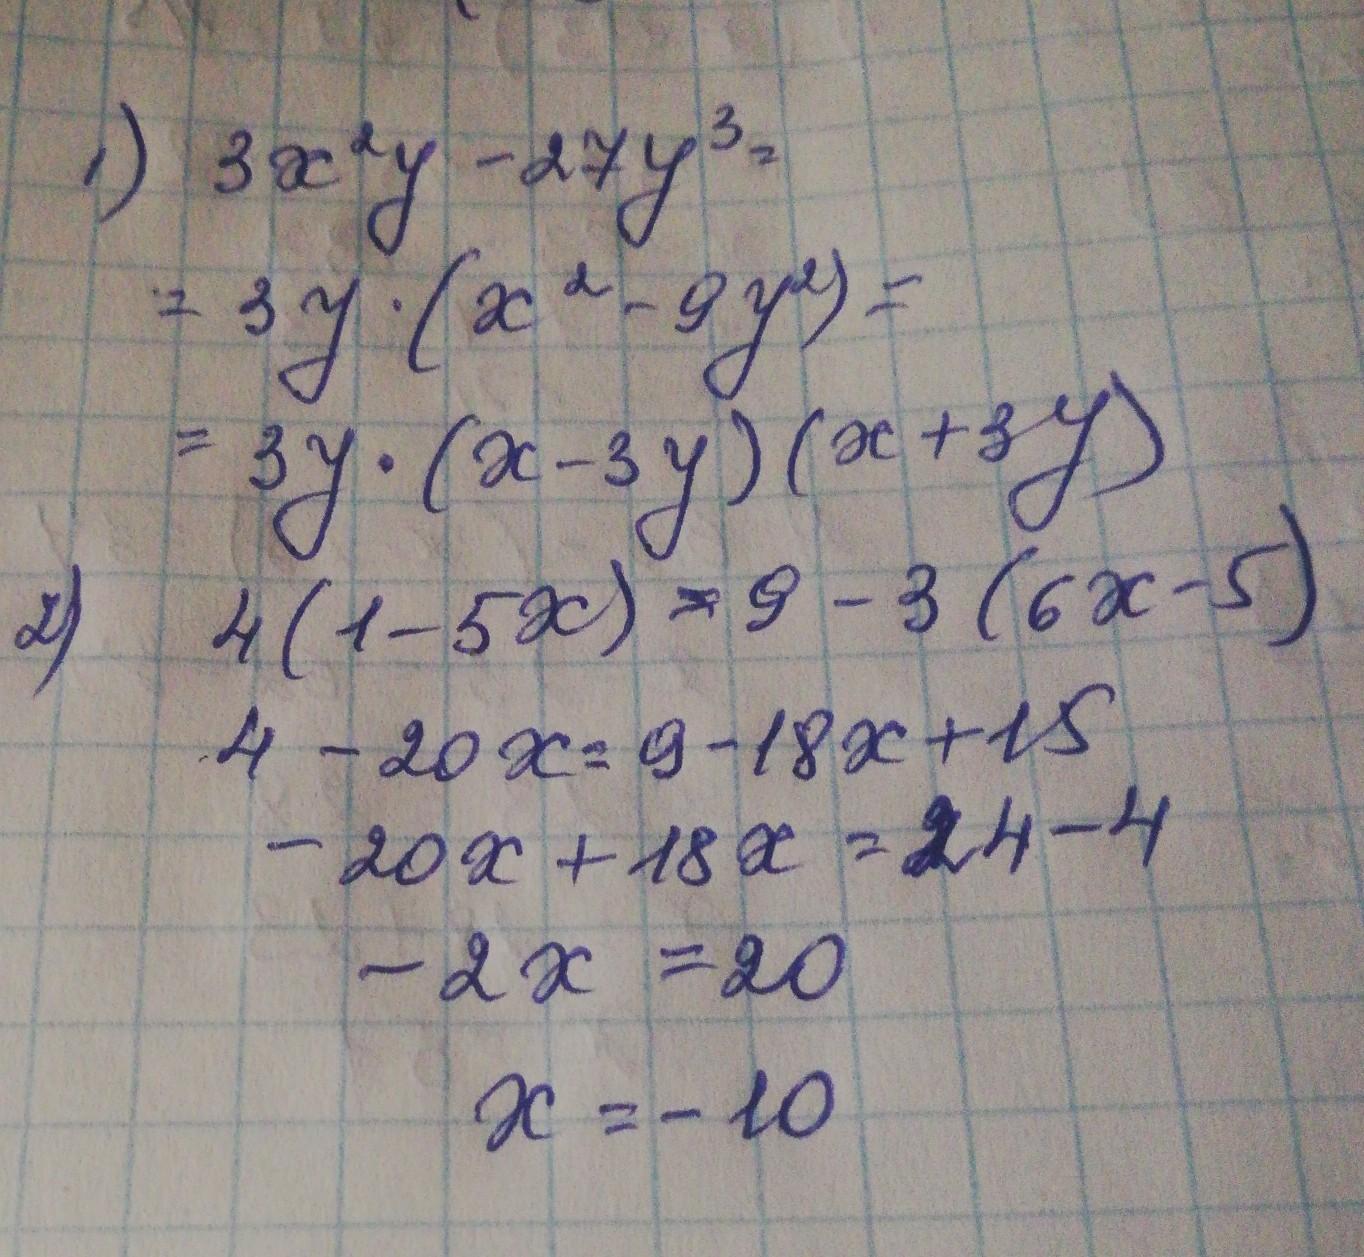 1) 3x²y - 27y³ =
= 3y · (x² - 9y²) =
= 3y · (x - 3y) (x + 3y)
2) 4(1 - 5x) = 9 - 3 (6x - 5)
4 - 20x = 9 - 18x + 15
- 20x + 18x = 24 - 4
- 2x = 20
x = - 10